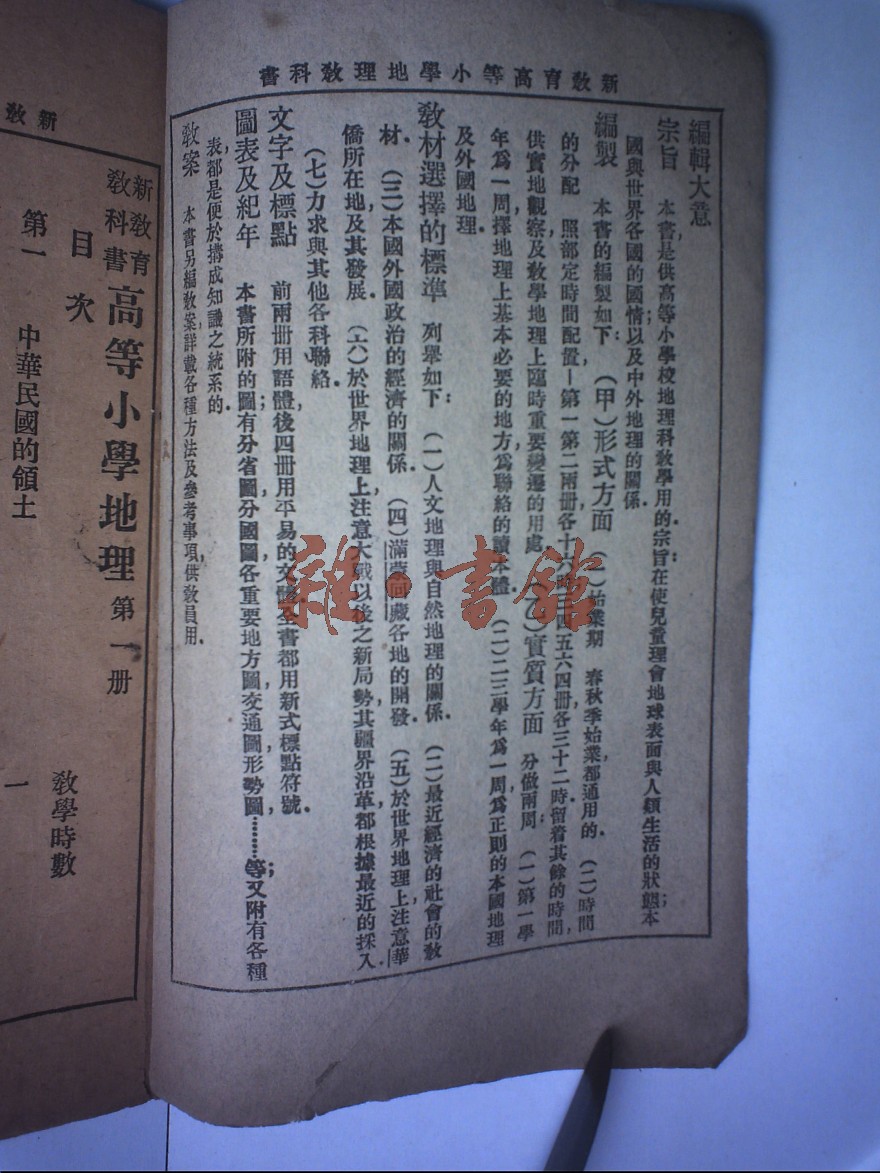 新教育高等小學地理教科書
編輯大意
宗旨 本書是供高等小學校地理科教學用的.宗旨在使兒童理會地球表面與人類生活的狀態;本
國與世界各國的國情;以及中外地理的關係.
編製 本書的編製如下: (甲)形式方面 (一)始業期 春秋季始業都通用的. (二)時間
的分配 照部定時間配置—第一第二兩冊各十六時三四五六四冊各三十二時.留着其餘的時間,
供實地觀察及教學地理上臨時重要變遷的用處. (乙)實質方面 分做兩周: (一)第一學
年爲一周,擇地理上基本必要的地方,爲聯絡的讀本體. (二)二三學年爲一周,爲正則的本國地理
及外國地理.
教材選擇的標準 列舉如下: (一)人文地理與自然地理的關係. (二)最近經濟的社會的教
材. (三)本國外國政治的經濟的關係. (四)滿蒙回藏各地的開發. (五)於世界地理上,注意華
僑所在地,及其發展. (六)於世界地理上,注意大戰以後之新局勢,其疆界沿革,都根據最近的採入.
(七)力求與其他各科聯絡.
文字及標點 前兩冊用語體,後四冊用平易的文體.全書都用新式標點符號.
圖表及紀年 本書所附的圖,有分省圖;分國圖,各重要地方圖,交通圖,形勢圖………等;又附有各種
表,都是便於搆成知識之統系的.
教案 本書另編教案,詳載各種方法及參考事項,供教員用.
雜·書館
新教
新教育
教科書
高等小學地理 第一册
目次
教學時數
第一 中華民國的領土
一